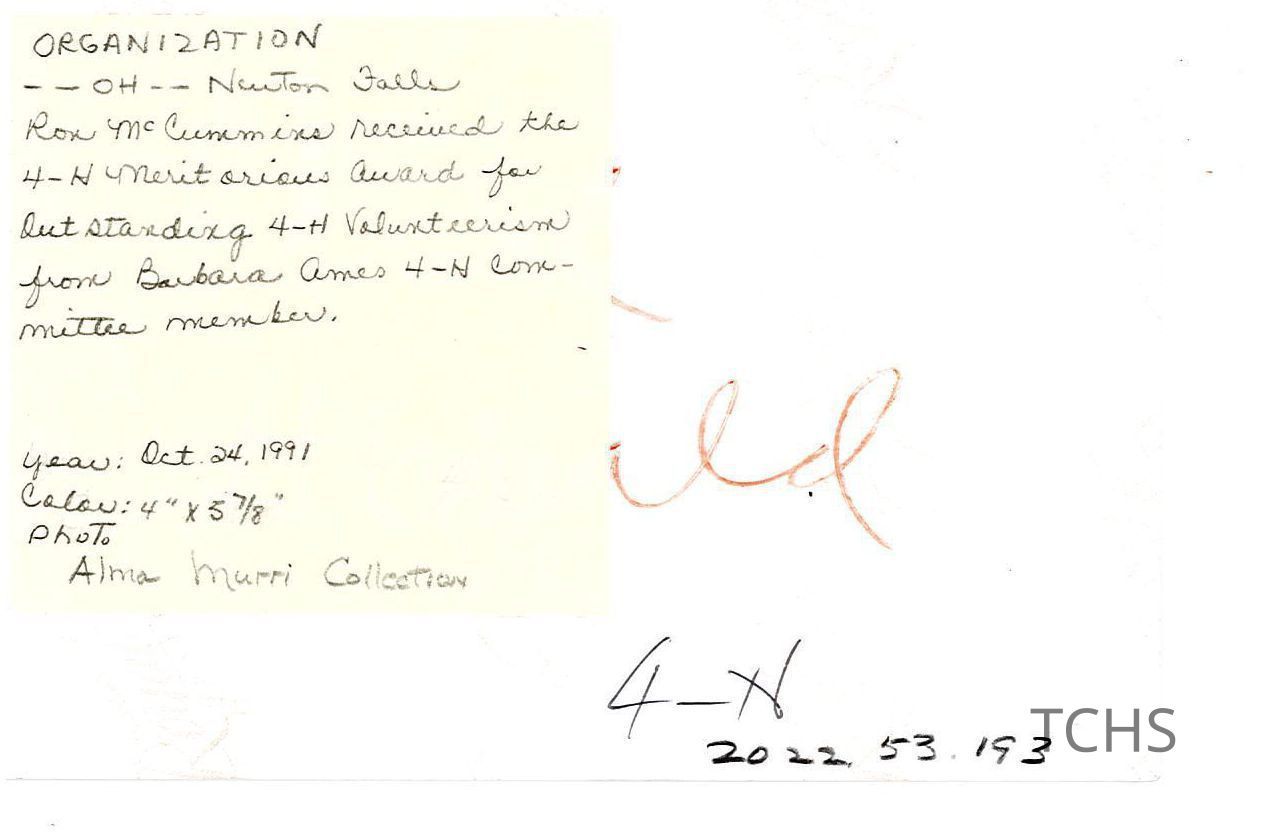 ORGANIZATION
-- OH -- Newton Falls
Ron McCummins received the
4-H Meritorious Award for
Outstanding 4-H Volunteerism
from Barbara Ames 4-H Com-
mittee member.
year: Oct. 24, 1991
Color: 4" x 5 7/8"
Photo
Alma Murri Collection
4-H
2022.53.193
TCHS